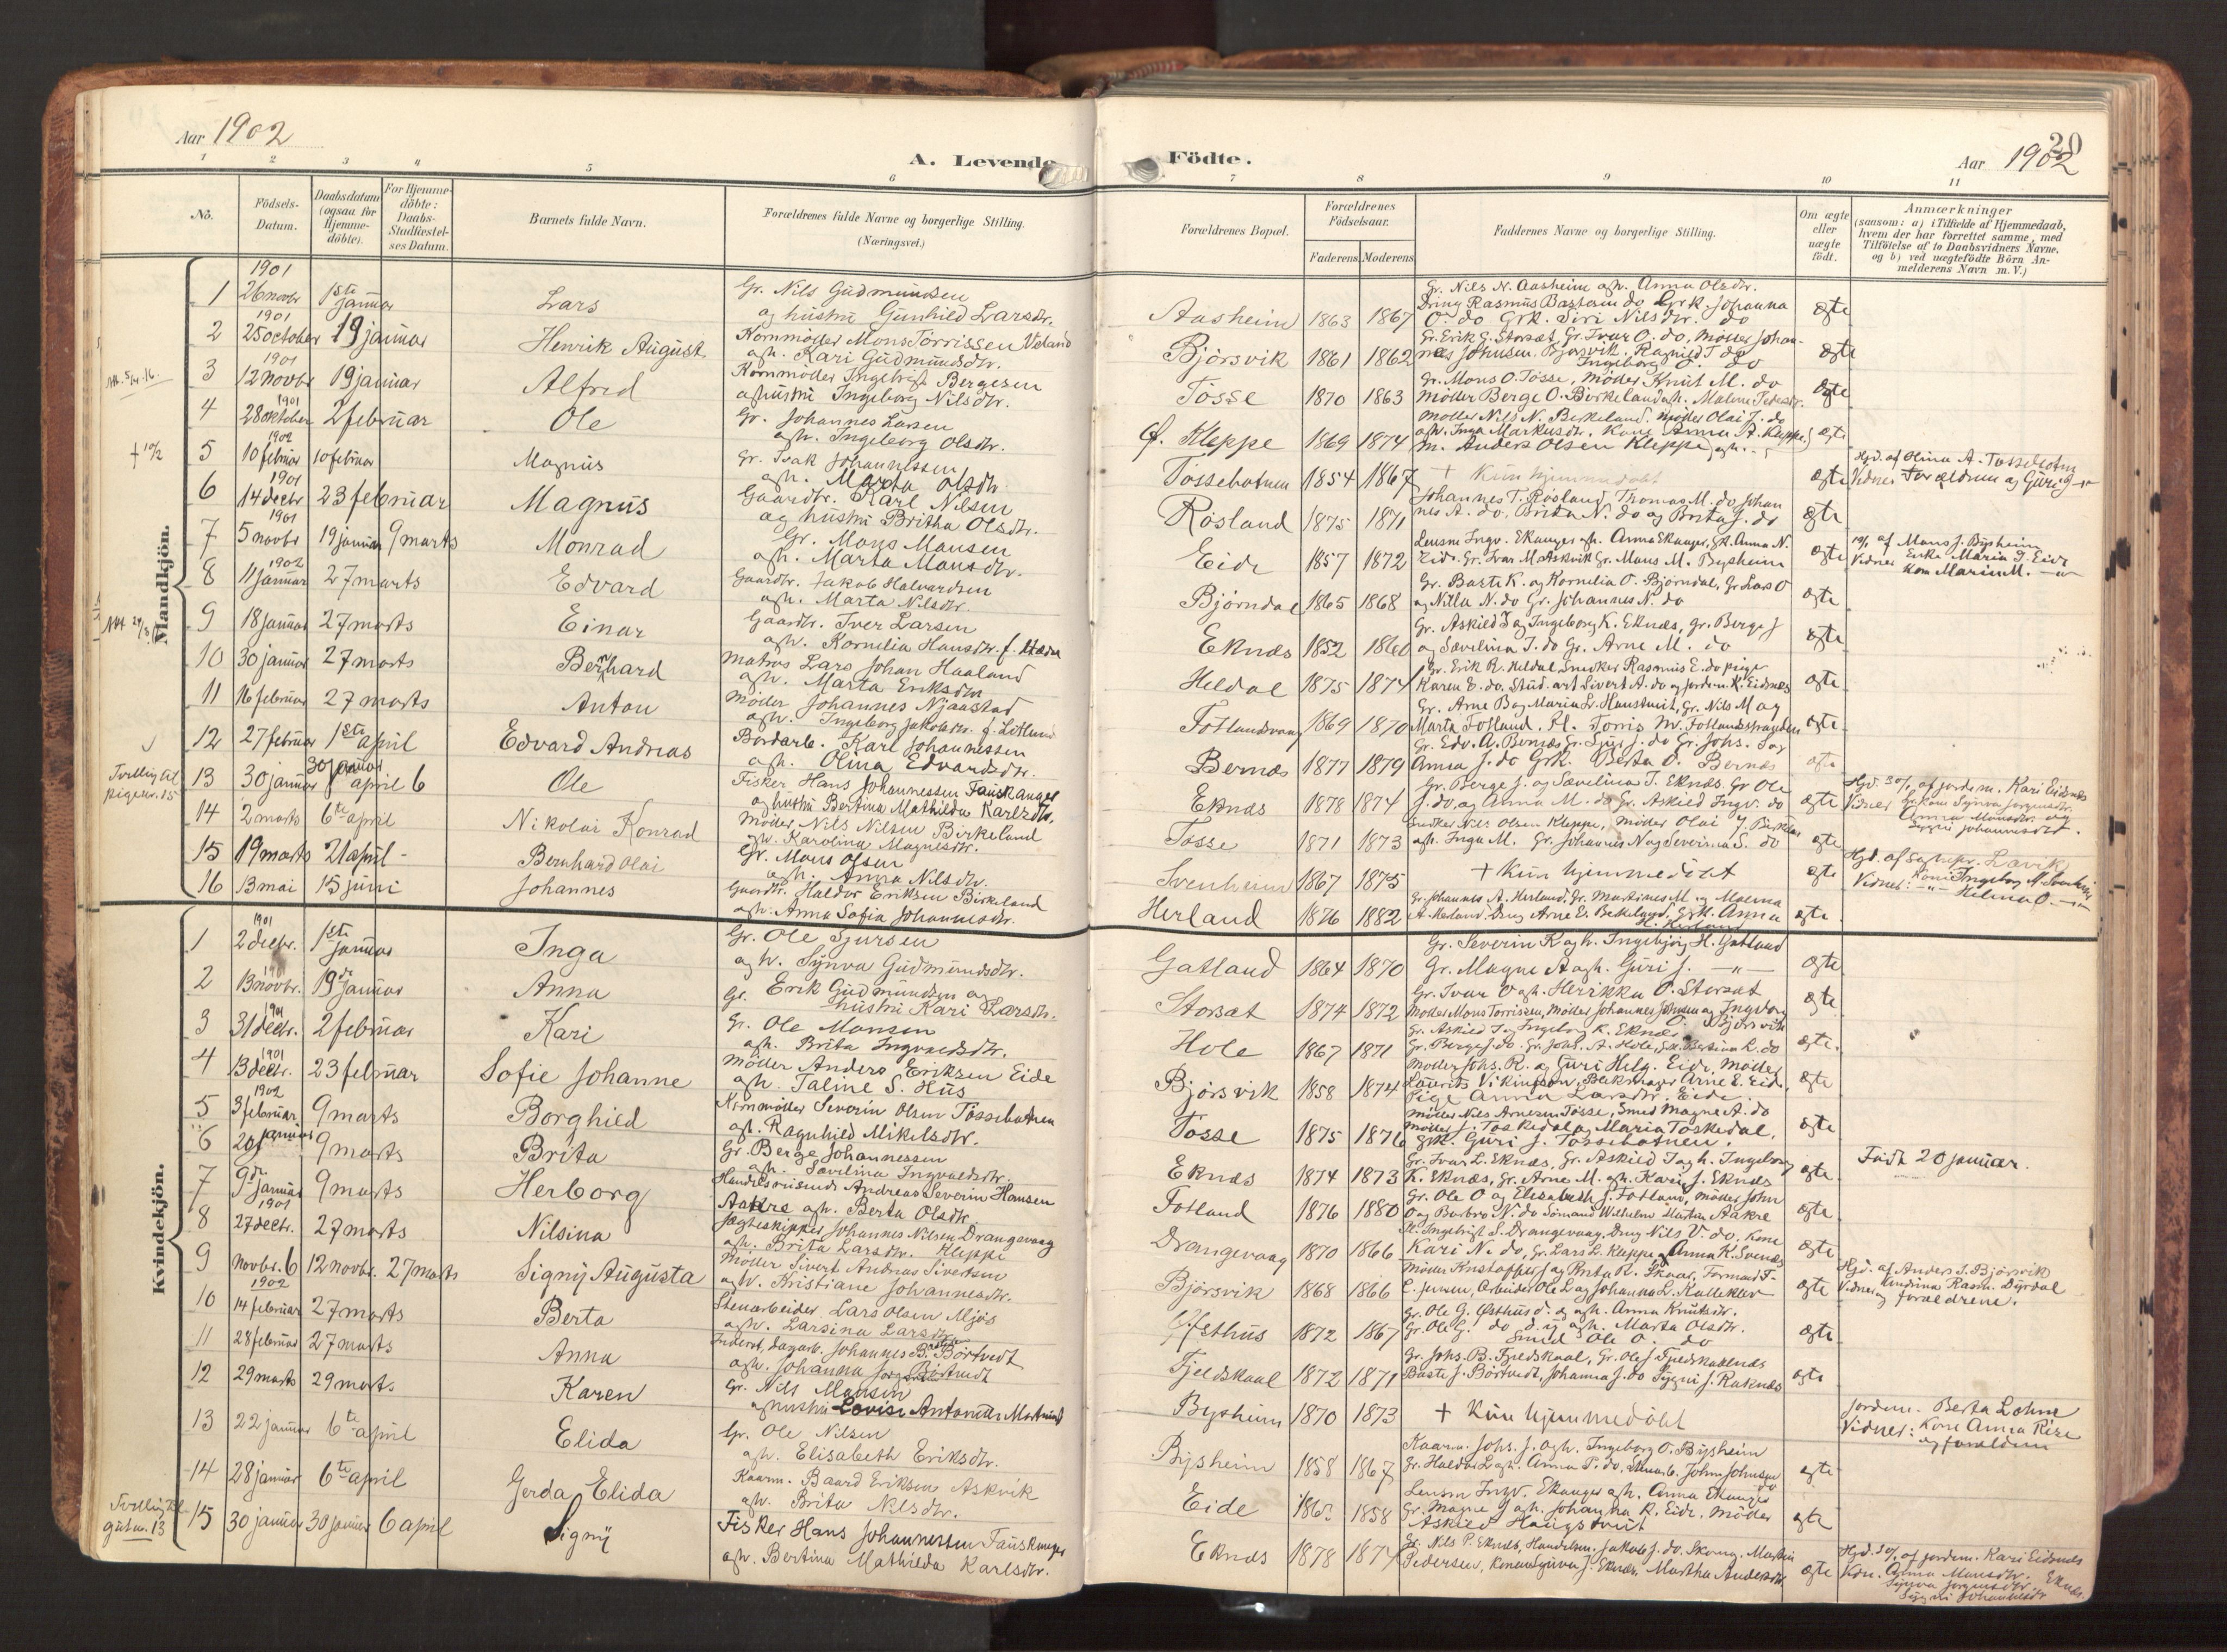 Aar 1902
A. Levende
Födte.
20
Aar 1902
1 2 3 4 5 6 7 8 9 10 11
No.
Födsels-Datum.
Daabsdatum (ogsaa for Hjemme-döbte).
For Hjemme-döbte: Daabs-Stadfæstel-ses Datum.
Barnets fulde Navn.
Forældrenes fulde Navne og borgerlige Stilling. (Næringsvei.)
Forældrenes Bopæl.
Forældrenes Födselsaar.
Faderens Moderens
Faddernes Navne og borgerlige Stilling.
Om ægte eller uægte födt.
Anmærkninger
(saasom: a) i Tilfælde af Hjemmedaab, hvem der har forrettet samme, med Tilföielse af to Daabsvidners Navne, og b) ved uægtefödte Börn An-melderens Navn m. V.)
Mandkjön.
1 1901 26 novbr 1ste januar Lars Gr. Nils Gudmundsen og hustru Gunhild Larsdtr. Aasheim 1863 1867 Gr. Nils N. Aasheim ogh. Anna Olsdtr. Dring Rasmus Bastesen do Grk. Johanna O. do Grk. Siri Nilsdtr. do ægte
2 1901 25 october 19 januar Henrik August Kornmöller Mons Torrissen ogh. Kari Gudmundsdtr. Björsvik 1861 1862 Gr. Erik G. Storsæt Gr. Ivar O. do, Möller Johan-nes Johnsen Bjorsvik, Ragnild T. do Ingeborg O. do ægte
3 1901 12 novbr 19 januar Alfred Kornmöller Ingebrigt Bergesen oghustru Ingeborg Nilsdtr. Tösse 1870 1863 Gr. Mons O. Tösse, Möller Knut M. do Möller Berge O. Birkeland ogh. Malene ægte
4 1901 28 oktober 2 februar Ole Gr. Johannes Larsen ogh. Ingeborg Olsdtr. Kleppe 1869 1874 Möller Nils N. Birkeland, Möller Olai J. do ogh. Inga Markusdtr. Kone Anna A. Kleppe m. Anders Olsen Kleppe ogh. ægte
† 10/2 5 1902 10 februar 10 februar Magnus Gr. Isak Johannessen ogh. Marta Olsdtr Tössebotnen 1854 1867 † Kun hjemmedöbt ægte Hjd. af Olina A. Tössebotnen Vidner Forældrene og Guri J
6 1901 14 decbr 23 februar Magnus Gaardbr. Karl Nilsen og hustru Britha Olsdtr. Rösland 1875 1871 Johannes T. Rösland, Thomas M. do Johan nes A. do. Brita N. do og Brita J. do ægte
7 1901 5 novbr 19 januar 9 marts Monrad Gr. Mons Monsen ogh. Marta Monsdtr. Eide 1857 1872 Lensm. Ingv. Ekanger ogh. Anna Ekanger, Gk Anna N. Eide. Gr. Ivar M Askvik Gr. Mons M. Bysheim ægte af Mons J. Bysheim Enke Maria J. Eide Vidner Kom Marim M.
8 1902 11 januar 27 marts Edvard Gaardbr. Jakob Halvardsen ogh. Marta Nilsdtr. Björndal 1865 1868 Gr. Baste K. og Kornelia O. Björndal, Gr Lars O og Nilla N. do Gr. Johannes N. do ægte
9 18 januar 27 marts Einar Gaardbr. Iver Larsen ogh. Kornelia Hansdtr. Eknæs 1852 1860 Gr. Askield I og Ingeborg K. Eknæs, Gr. Berge J og Sævelina I. do Gr. Arne M. do ægte
10 30 januar 27 marts Bernhard Matros Lars Johan Haaland ogh. Marta Eriksdtr Heldal 1875 1874 Gr. Erik R. Heldal, Snedker Rasmus E. do pige Karen E. do, Stud. art Sivert A. do og jordm. K. Eidsnes ægte
11 16 februar 27 marts Anton Möller Johannes Njaastad ogh. Ingeborg Jakobsdtr. Fotlandsvaag 1869 1870 Gr. Arne B og Maria L. Hanstveit, Gr. Nils M og Marta Fotland. ægte
12 27 februar 1ste april Edvard Andreas Bordarb. Karl Johannessen ogh. Olina Edvardsdtr. Bernæs 1877 1879 Gr. Edv. A. Bernæs Gr. Sjur J. do Gr. Johs. I og Anna J. do Grk. Berta O. Bernæs
Tvilling til pigenr. 15 13 30 januar 30 januar april 6 Ole Fisker Hans Johannessen Fauskanger og hustru Bertina Mathilda Karlsdtr. Eknæs 1878 1874 Gr. Berge J. og Sævelina I. Eknæs. Gr Ole J. do og Anna M. do Gr. Askield Ingv. do ægte Hjd. 30/1 af jordem. Kari Eidsnæs Vidner Synva Jorgensdtr. Anna Monsdtr. og Sygni Johannesdtr.
14 2 marts 6te april Nikolai Konrad Möller Nils Nilsen Birkeland ogh. Karolina Magnesdtr. Tösse 1871 1873 Snedker Nils Olsen Kleppe, Möller Olai J. Birkeland ogh. Inga M. Gr. Johannes N og Severina S. do ægte
15 19 marts 21 april Bernhard Olai Gr. Mons Olsen ogh. Anna Nilsdtr. Svenheim 1867 1875 † Kun hjemmedöbt ægte Hjd. af Sognepr. Lavik Vidner: Kone Ingeborg M. Svenheim Helena O.
16 13 mai 15 juni Johannes Gaardbr. Haldor Eriksen Birkeland ogh. Anna Sofia Johannesdtr. Herland 1876 1882 Gr. Johannes A. Herland, Gr. Martines M. og Malena A. Herland, Dreng Arne E. Birkeland, Grk. Anna H. Herland ægte
Kvindekjön.
1 1901 2 decbr. 1ste januar Inga Gr. Ole Sjursen og h. Synva Gudmundsdtr. Gatland 1864 1870 Gr. Severin K ogh. Ingebjörg H. Gatland Gr. Magne A ogh. Guri J. —"— ægte
2 1901 13 novbr. 19de januar Anna Gr. Erik Gudmundsen og hustru Kari Larsdtr. Storsæt 1874 1872 Gr. Ivar O ogh. Herikka O. Storsæt Möller Mons Torrissen, Möller Johannes Johnsen og Ingeborg O. Björsvik ægte
3 1901 31 decbr. 2 februar Kari Gr. Ole Monsen ogh. Brita Ingvaldsdtr. Hole 1867 1871 Gr. Askield I og Ingeborg K. Eknæs Gr. Berge J. do. Gr. Johs. A. Hole, Gk. Bertina L. do ægte.
4 1901 13 decbr. 23 februar Sofie Johanne Möller Anders Eriksen Eide ogh. Taline S. Hus Björsvik 1858 1874 Möller Johs. R. og Guri Helg. Eide, Möller Laurits Vikingson, Arne E. Eide, Pige Anna Larsdtr. Eide. ægte
5 1902 3 februar 9 marts Borghild Kornmöller Severin Olsen Tössebotnen ogh. Ragnhild Mikelsdtr. Tösse 1875 1876 Möller Nils Arnesen Tösse, Smed Magne A. do Möller J. Toskedal og Maria Toskedal. Grk. Guri J. Tossebotnen. ægte
6 20 januar 9 marts Brita Gr. Berge Johannessen ogh. Sævelina Ingvaldsdtr. Eknæs 1874 1873 Gr. Ivar L. Eknæs, Gr. Askield I og h. Ingeborg K. Eknæs, Gr. Arne M. ogh. Kari J. Eknæs ægte Födt 20 januar.
7 9de januar 9 marts Herborg Handelsreisende Andreas Severin Hansen Aakre ogh. Berta Olsdtr. Fotland 1876 1880 Gr. Ole O og Elesabeth J. Fotland, Möller John O og Barbro N. do Sömand Wilhelm Martin Aakre ægte
8 1901 27 decbr. 27 marts Nilsina Jægteskipper Johannes Nilsen Drangevaag ogh. Brita Larsdtr. Kleppe Drangevaag 1870 1866 Ingebrigt S. Drangevaag, Dreng Nils V. do, Kone Kari N. do, Gr. Lars L. Kleppe og Anna K. Svenæs ægte
9 novbr. 6 12 novbr. 27 marts Signy Augusta Möller Sivert Andreas Sivertsen og h. Kristiane Johannesdtr. Björsvik 1868 1866 Möller Kristoffer J og Brita R. Skaar, Formand T- E. Jensen, Arbeider Ole L og Johanna L. Kalleklev ægte Hjd. af Anders J. Björsvik Vidner Andrina Rasm. Dyrdal og forældrene.
10 1902 14 februar 27 marts Berta Stenarbeider Lars Olsen Mjös ogh. Larsina Larsdtr. Östhus 1872 1867 Gr. Ole G. Östhus d. æ ogh. Anna Knutsdtr. Gr. Ole G. do d. y ogh. Marta Olsdtr. Smed Ole O. do ægte
11 28 februar 27 marts Anna Inderst, Dagarb. Johannes B. Börtvedt ogh. Johanna Börtvedt Fjeldskaal 1872 1871 Gr. Johs. B. Fjeldskaal, Gr. Ole J Fjeldskaalnæs Baste J. Börtvedt, Johanna J. do Sygni J. Raknæs ægte
12 29 marts 29 marts Karen Gr. Nils Monsen oghustru Lovise Antonette Bysheim 1870 1873 † Kun hjemmedöbt Jordem. Berta Lohne Vidner: Kone Anna Rise og forældrene
13 22 januar 6te april Elida Gr. Ole Nilsen ogh. Elisabeth Eriksdtr. Bysheim 1858 1867 Kaarm. Johs. J. ogh. Ingeborg O. Bysheim Gr. Haldor L ogh. Anna T. do, John Johnsen do ægte
14 28 januar 6te april Gerda Elida Kaarm. Baard Eriksen Askvik ogh. Brita Nilsdtr. Eide 1865 1858 Lensm Ingv. Ekanger ogh. Anna Ekanger Gr. Magne J ogh. Johanna K. Eide, Möller Askield Haugstveit ægte
Tvilling til gutnr. 13 15 30 januar 30 januar 6 april Signy Fisker Hans Johannessen Fauskanger ogh. Bertina Mathilda Karlsdtr. Eknæs 1878 1874 Gr. Nils P. Eknæs, Handelsm. Jakob J. do. Skomg. Martin Pedersen, Kone Synva J. Eknæs, Martha Andersdtr. ægte Hjd. 30/1 af jordem. Kari Eidsnæs Vidn. Anna Monsdtr. Synva Jorgensdtr. Eknæs. Sygni Johannesdtr